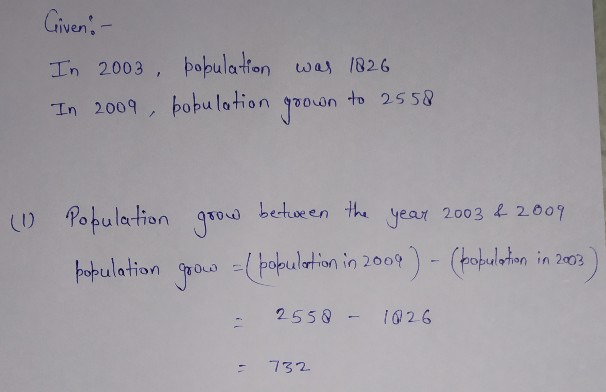 Given:-
In 2003, population was 1826
In 2009, population grown to 2558
(1) Population grow between the year 2003 & 2009
population grow = (population in 2009) - (population in 2003)
= 2558 - 1826
= 732